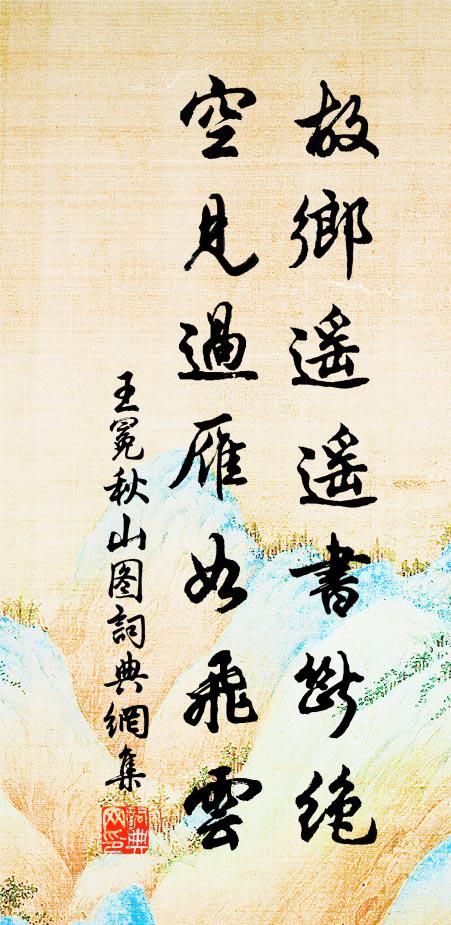 故鄉遥遥書斷絶
空見過雁如飛雲
王冕秋山图詞典網集
詞典网印